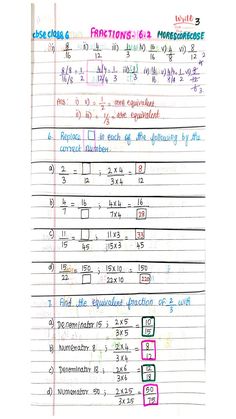 Write 3
cbse class 6 FRACTIONS- 6.2 MORESCOREOSE
i) 8/16 ii) 4/12 iii) 1/3 iv) 8/16 v) 4/8 vi) 8/12
Ans: i) v) = 1/2 = are equivalent
ii) iii) = 1/3 are equivalent
6. Replace □ in each of the following by the
correct number.
a) 2/3 = □/12 ; 2×4/3×4 = 8/12
b) 4/7 = 16/□ ; 4×4/7×4 = 16/28
c) 11/15 = □/45 ; 11×3/15×3 = 33/45
d) 15/22 = 150/□ ; 15×10/22×10 = 150/220
7. Find the equivalent fraction of 2/3 with
a) Denominator 15 ; 2×5/3×5 = 10/15
b) Numerator 8 ; 2×4/3×4 = 8/12
c) Denominator 18 ; 2×6/3×6 = 12/18
d) Numerator 50 ; 2×25/3×25 = 50/75